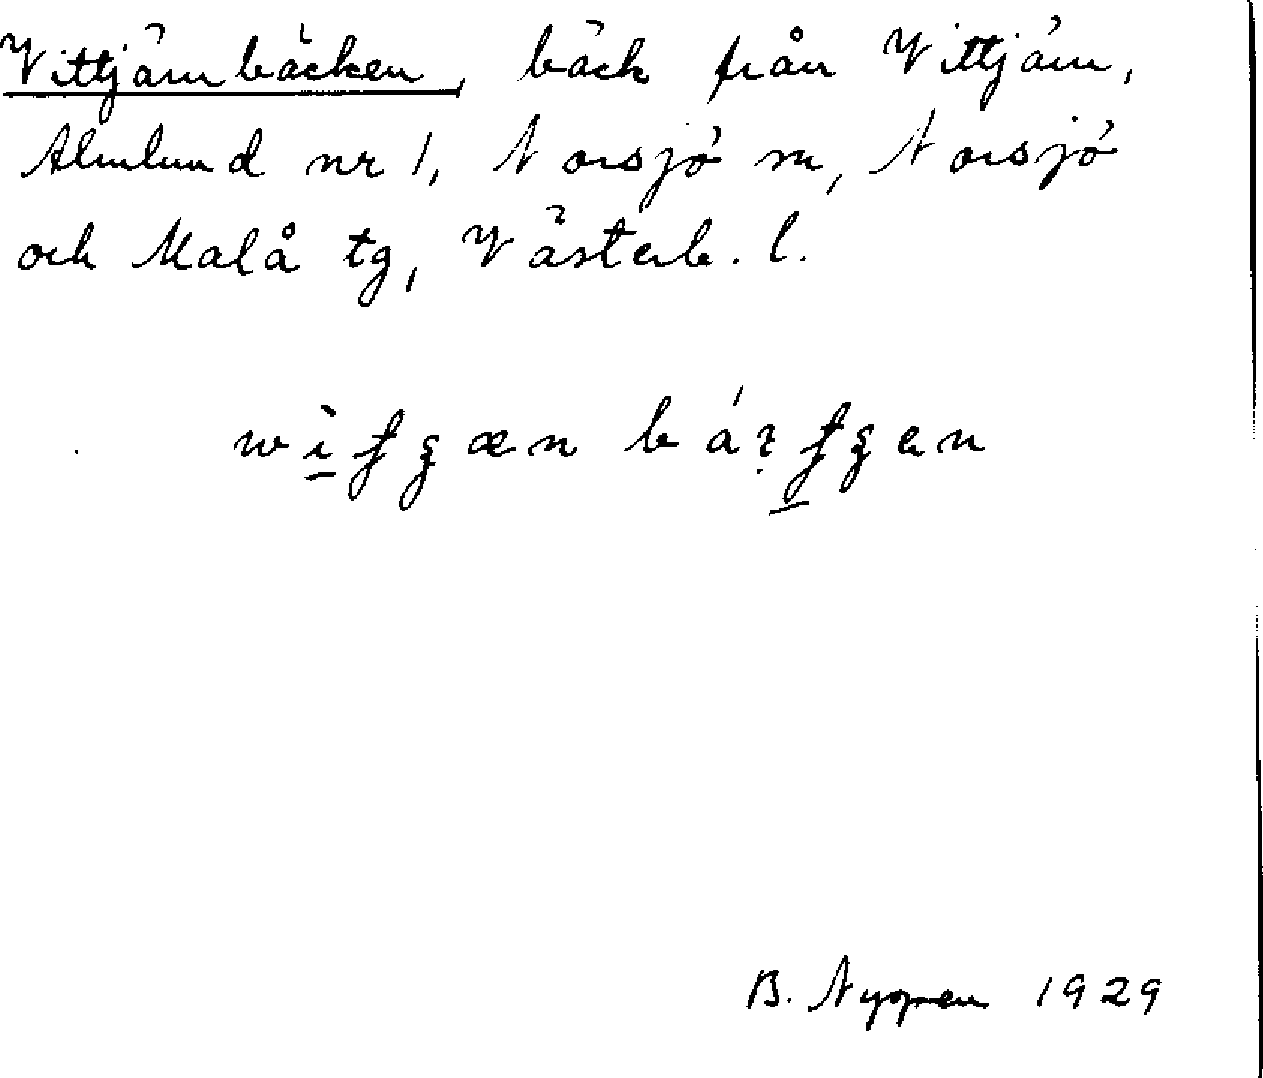 Vittjärnbäcken, bäck från Vittjärn,
Almlund nr 1, Norsjö sn, Norsjö
och Malå tg, Västerb. l.
B. Nyppen 1929